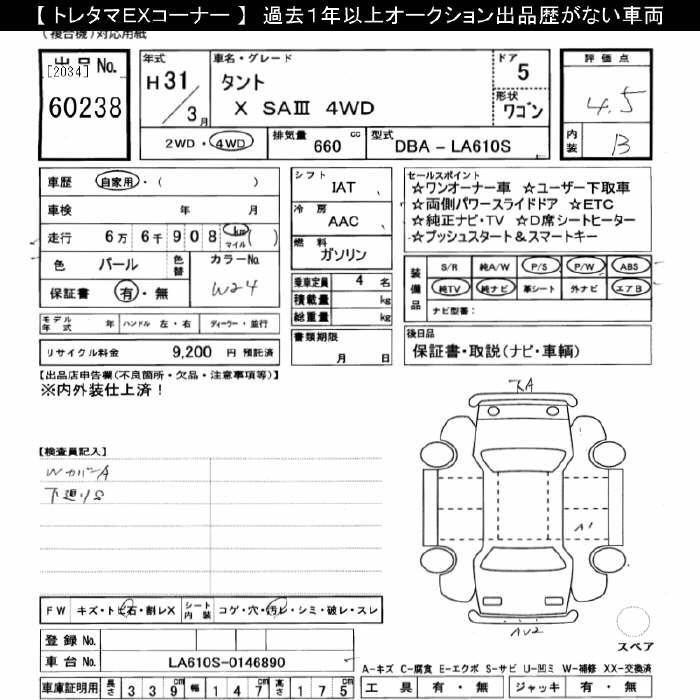 【 トレタマEXコーナー 】 過去1年以上オークション出品歴がない車両
(複合機)対応用紙
出品No.
[2034]
60238
年式
H31
3月
車名・グレード
タント
X SAⅢ 4WD
ドア
5
形状
ワゴン
2WD・4WD
排気量
660
cc
型式
DBA - LA610S
評価点
4.5
内装
B
車歴
自家用・( )
車検 年 月
走行 6万6千908 km マイル ( )
色 パール
色替
カラーNo.
W24
保証書 有・無
モデル年式 年
ハンドル 左・右
ディーラー・並行
リサイクル料金 9,200 円 預託済
シフト
IAT
冷房
AAC
燃料
ガソリン
乗車定員 4 名
積載量 kg
総重量 kg
書類期限
月 日
セールスポイント
☆ワンオーナー車 ☆ユーザー下取車
☆両側パワースライドドア ☆ETC
☆純正ナビ・TV ☆D席シートヒーター
☆プッシュスタート&スマートキー
装備品
S/R 純A/W P/S P/W ABS
純TV 純ナビ 革シート 外ナビ エアB
ナビ型番:
後日品
保証書・取説(ナビ・車輌)
【出品店申告欄(不良箇所・欠品・注意事項等)】
※内外装仕上済!
【検査員記入】
WカバーA
下廻りS
A1
AU2
FW キズ・トビ石・割レX
シート内装
コゲ・穴・汚レ・シミ・破レ・スレ
登録 No.
車台 No. LA610S-0146890
車庫証明用 長さ 339cm 幅 147cm 高さ 175cm
スペア
A-キズ C-腐食 E-エクボ S-サビ U-凹ミ W-補修 XX-交換済
工具 有・無 ジャッキ 有・無